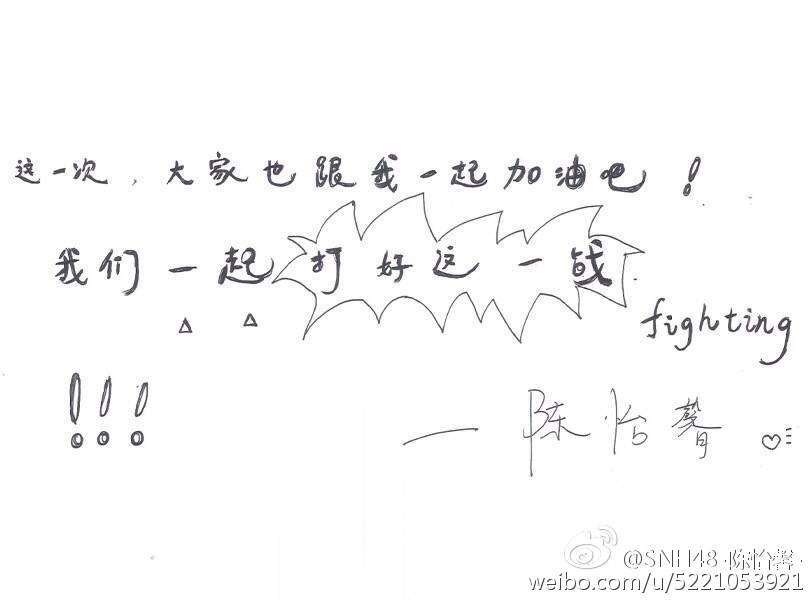 这一次，大家也跟我一起加油吧！
我们一起打好这一战
fighting
!!!
— 陈怡馨♡
@SNH48-陈怡馨-
weibo.com/u/5221053921